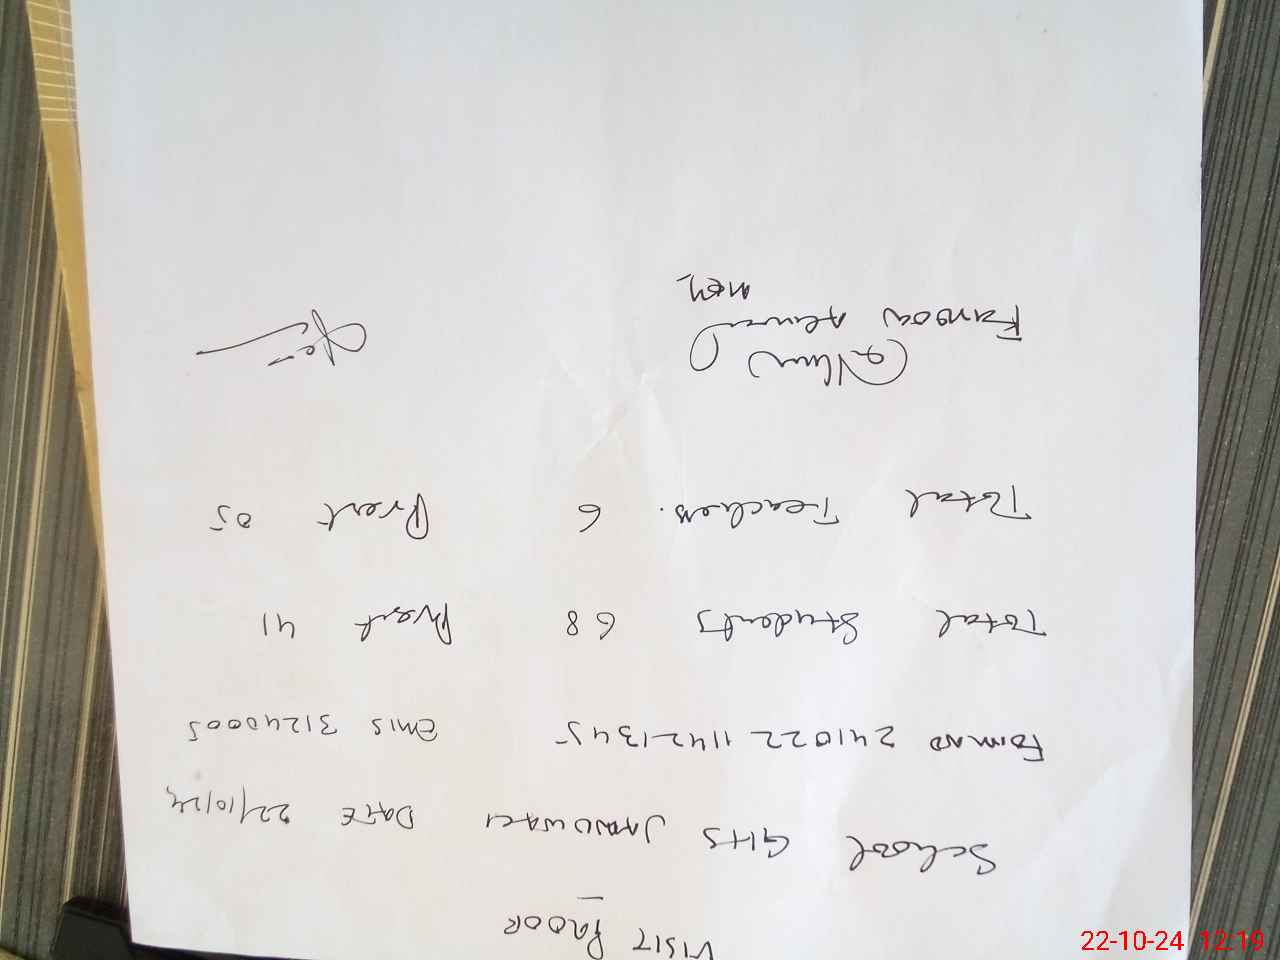 VISIT PROOF
School GHS Janowari DATE 22/10/24
Form No 241022 11421345 EMIS 31240005
Total Students 68 Present 41
Total Teachers. 6 Present 05
Farooq Ahmed
MEN
22-10-24 12:19